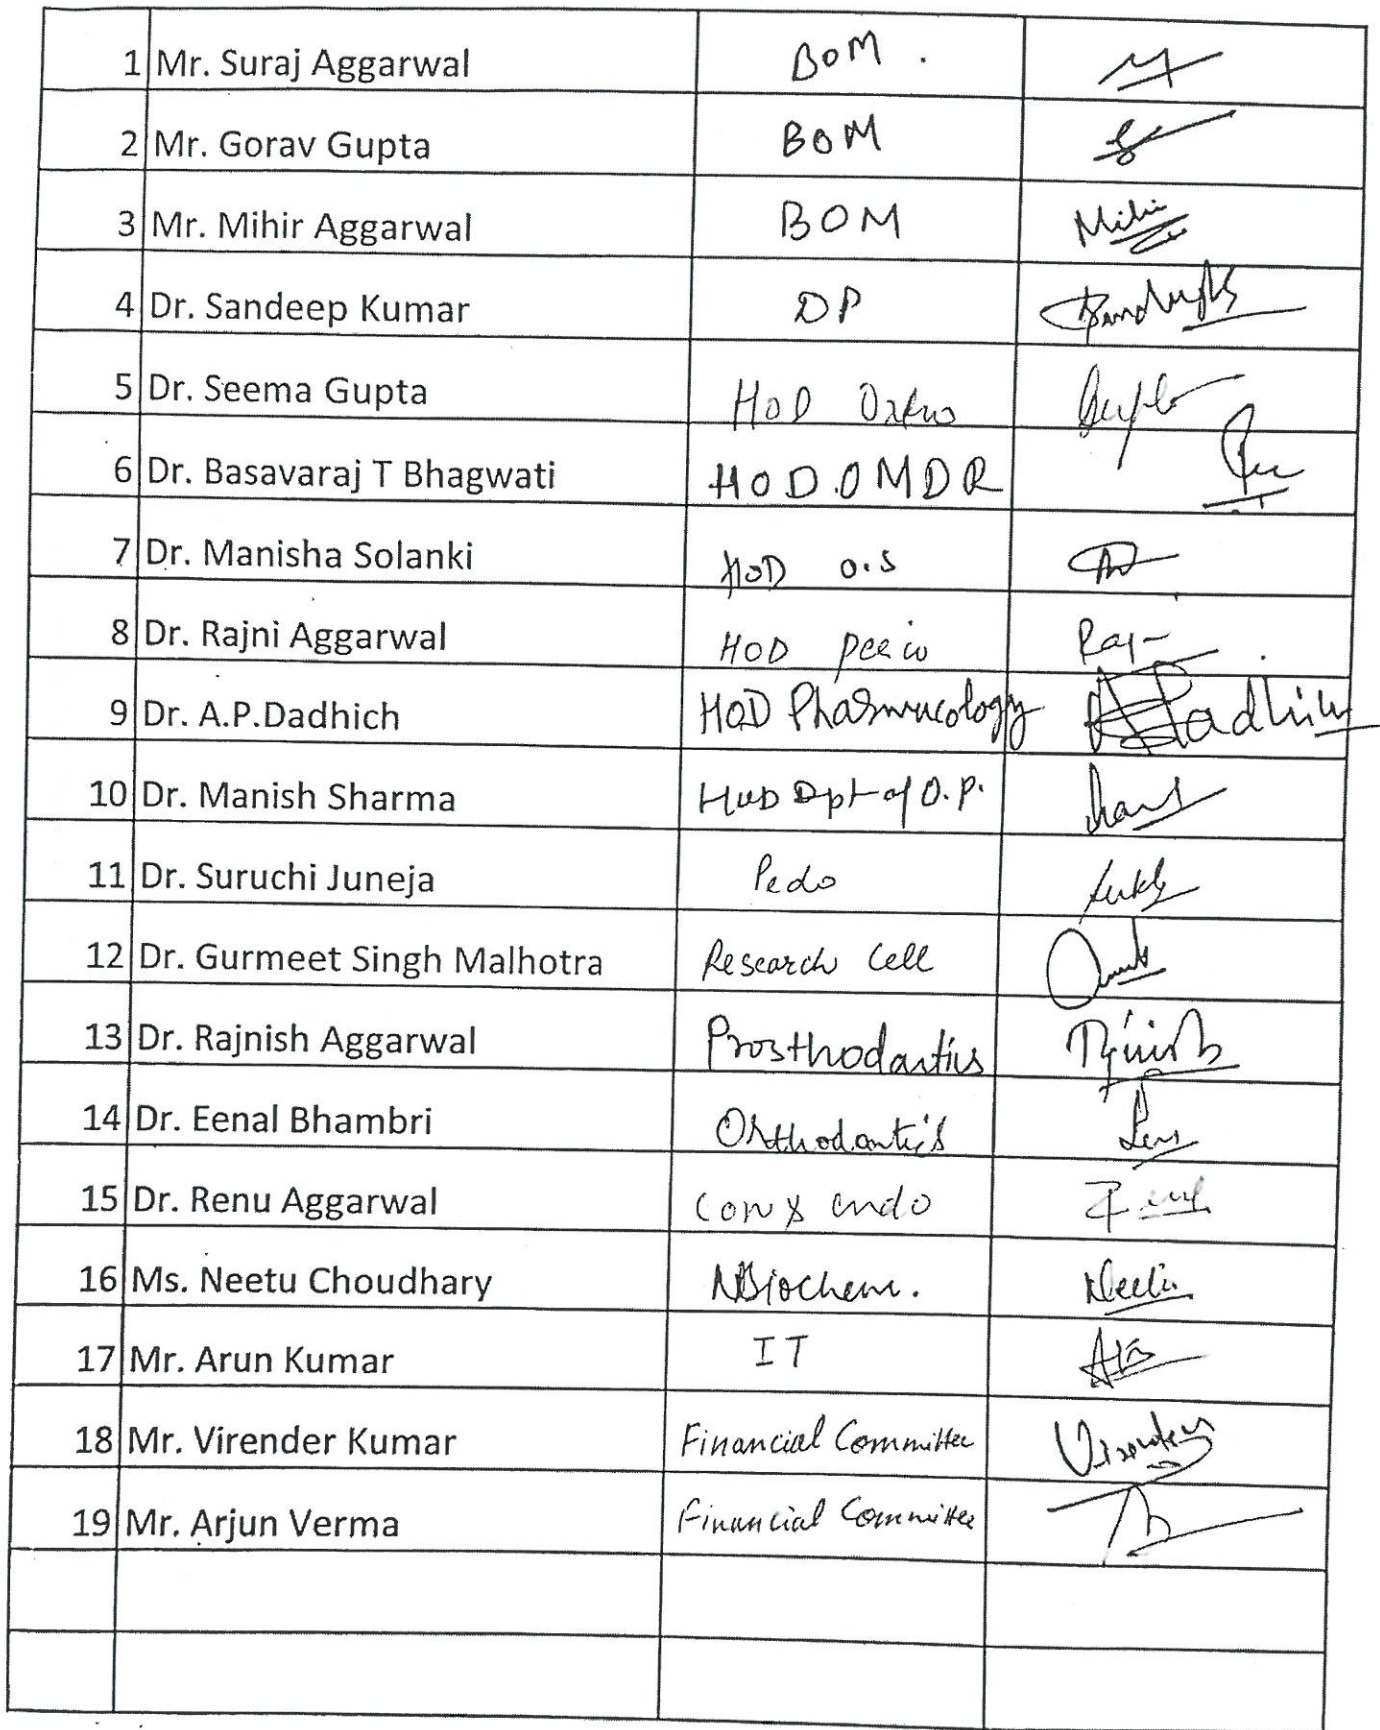 1 Mr. Suraj Aggarwal BOM.
2 Mr. Gorav Gupta BOM
3 Mr. Mihir Aggarwal BOM
4 Dr. Sandeep Kumar DP
5 Dr. Seema Gupta HOD
6 Dr. Basavaraj T Bhagwati HOD.OMDR
7 Dr. Manisha Solanki HOD O.S
8 Dr. Rajni Aggarwal HOD Perio
9 Dr. A.P.Dadhich HOD Pharmacology
10 Dr. Manish Sharma HOD Dpt of O.P.
11 Dr. Suruchi Juneja Pedo
12 Dr. Gurmeet Singh Malhotra Research Cell
13 Dr. Rajnish Aggarwal Prosthodontics
14 Dr. Eenal Bhambri Orthodontics
15 Dr. Renu Aggarwal endo
16 Ms. Neetu Choudhary Biochem. Neetu
17 Mr. Arun Kumar IT
18 Mr. Virender Kumar Financial Committee
19 Mr. Arjun Verma Financial Committee